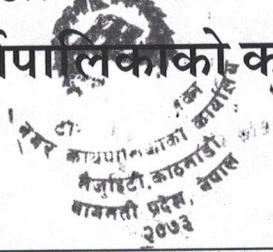 पालिकाको क
टो
नगर कार्यपालिकाको कार्यालय
मैजुहिटी, काठमाडौं
बागमती प्रदेश, नेपाल
२०७३